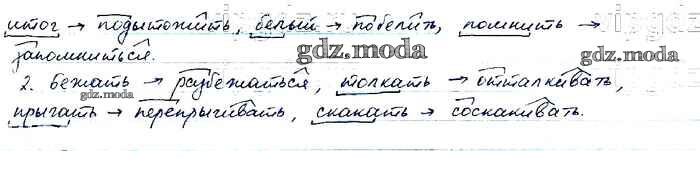 итог → подытожить, белый → побелить, помнить →
запомниться.
gdz.moda
2. Бежать → разбежаться, толкать → отталкивать,
gdz.moda
прыгать → перепрыгивать, скакать → соскакивать.
gdz.moda